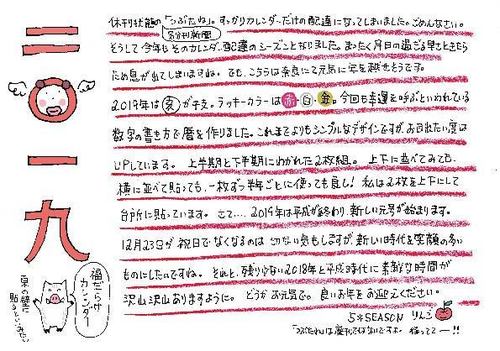 二〇一九
休刊状態の「つぶたね」。すっかりカレンダーだけの配達になってしまいました。ごめんなさい。
季刊新聞
そうして今年もそのカレンダー配達のシーズンとなりました。まったく月日の過ぎる早さときたら
ため息が出てしまいますね。でも、こちらは奈良にて元気に年を越せそうです。
2019年は亥が干支。ラッキーカラーは赤・白・金。今回も幸運を呼ぶといわれている
数字の書き方で暦を作りました。これまでよりもシンプルなデザインですが、お目出たい度は
UPしています。上半期と下半期にわかれた2枚組。上下に並べてみても、
横に並べて貼っても、一枚ずつ半年ごとに使っても良し!私は2枚を上下にして
台所に貼っています。さて…、2019年は平成が終わり、新しい元号が始まります。
12月23日が祝日でなくなるのは切ない気もしますが、新しい時代を笑顔の多い
ものにしたいですね。それと、残り少ない2018年と平成時代に素敵な時間が
沢山沢山ありますように。どうかお元気で。良いお年をお迎えください。
5*SEASON りんご
「つぶたね」は廃刊ではないですよ。待ってて—!!
福だらけカレンダー
貼るといいみたい